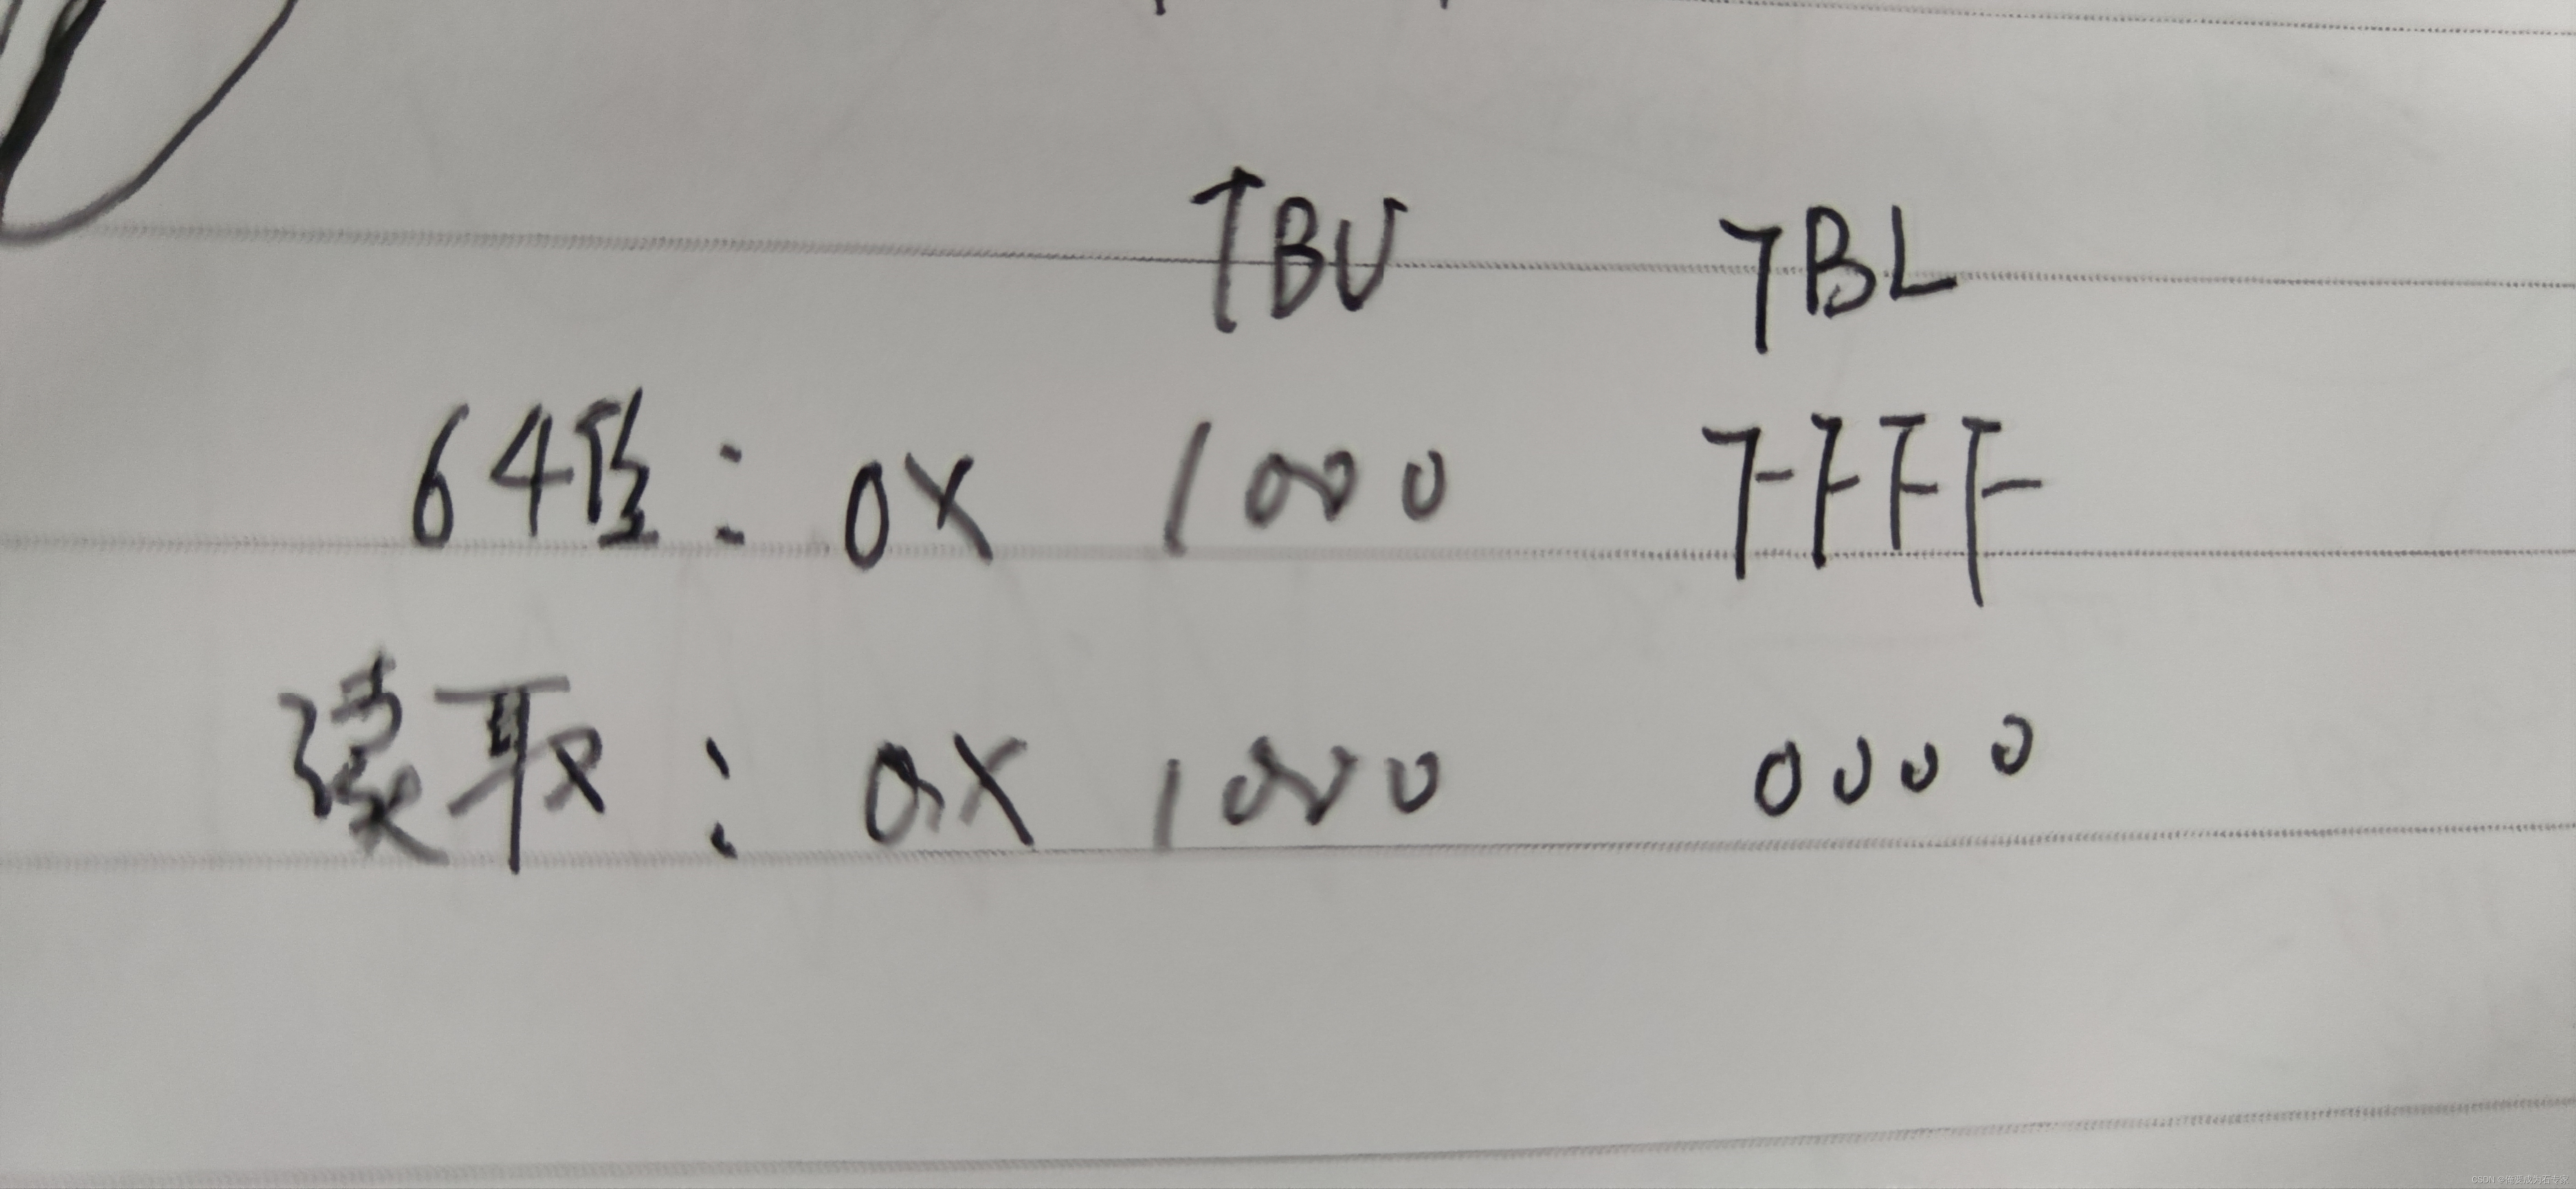 TBU TBL
64位: 0X 1000 FFFF
读取: 0X 1000 0000